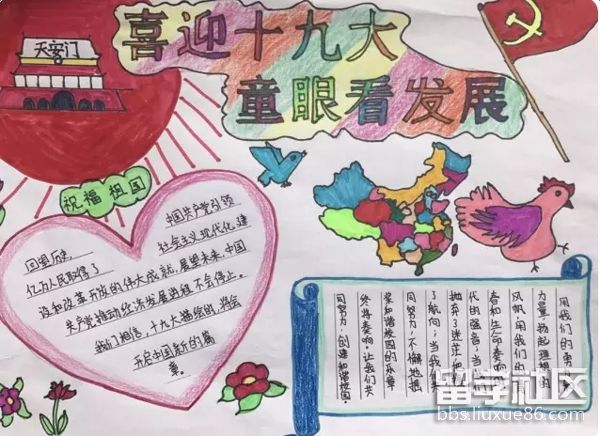 喜迎十九大
童眼看发展
天安门
祝福祖国
中国共产党引领
回望历史,
社会主义现代化建
亿万人民取得了
设和改革开放的伟大成就,展望未来,中国
共产党推动经济发展进程不会停止。
我们相信,十九大描绘的,将会
开启中国新的篇
章。
用我们的勇
力量,扬起理想的
风帆,用我们的
春和生命奏响
代的强音;当我们
抛弃了迷茫,把握
了航向;当我们共
同努力,不懈地
奏和谐校园的乐章
终将奏响。让我们共
同努力,创建和谐校园!
留学社区
bbs.liuxue86.com